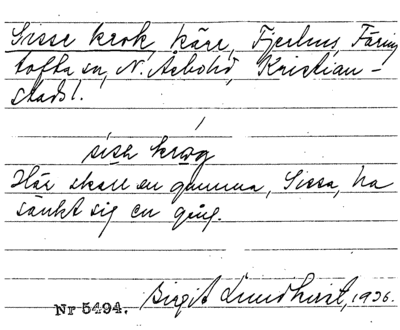 Sisse krok, kärr, Fjerhus, Färing
tofta sn, N. Åsbohd, Kristian-
stads l.
sisə krog
Här skall en gumma, Sissa, ha
sänkt sig en gång.
Nr 5494. Birgit Lundkvist, 1936.